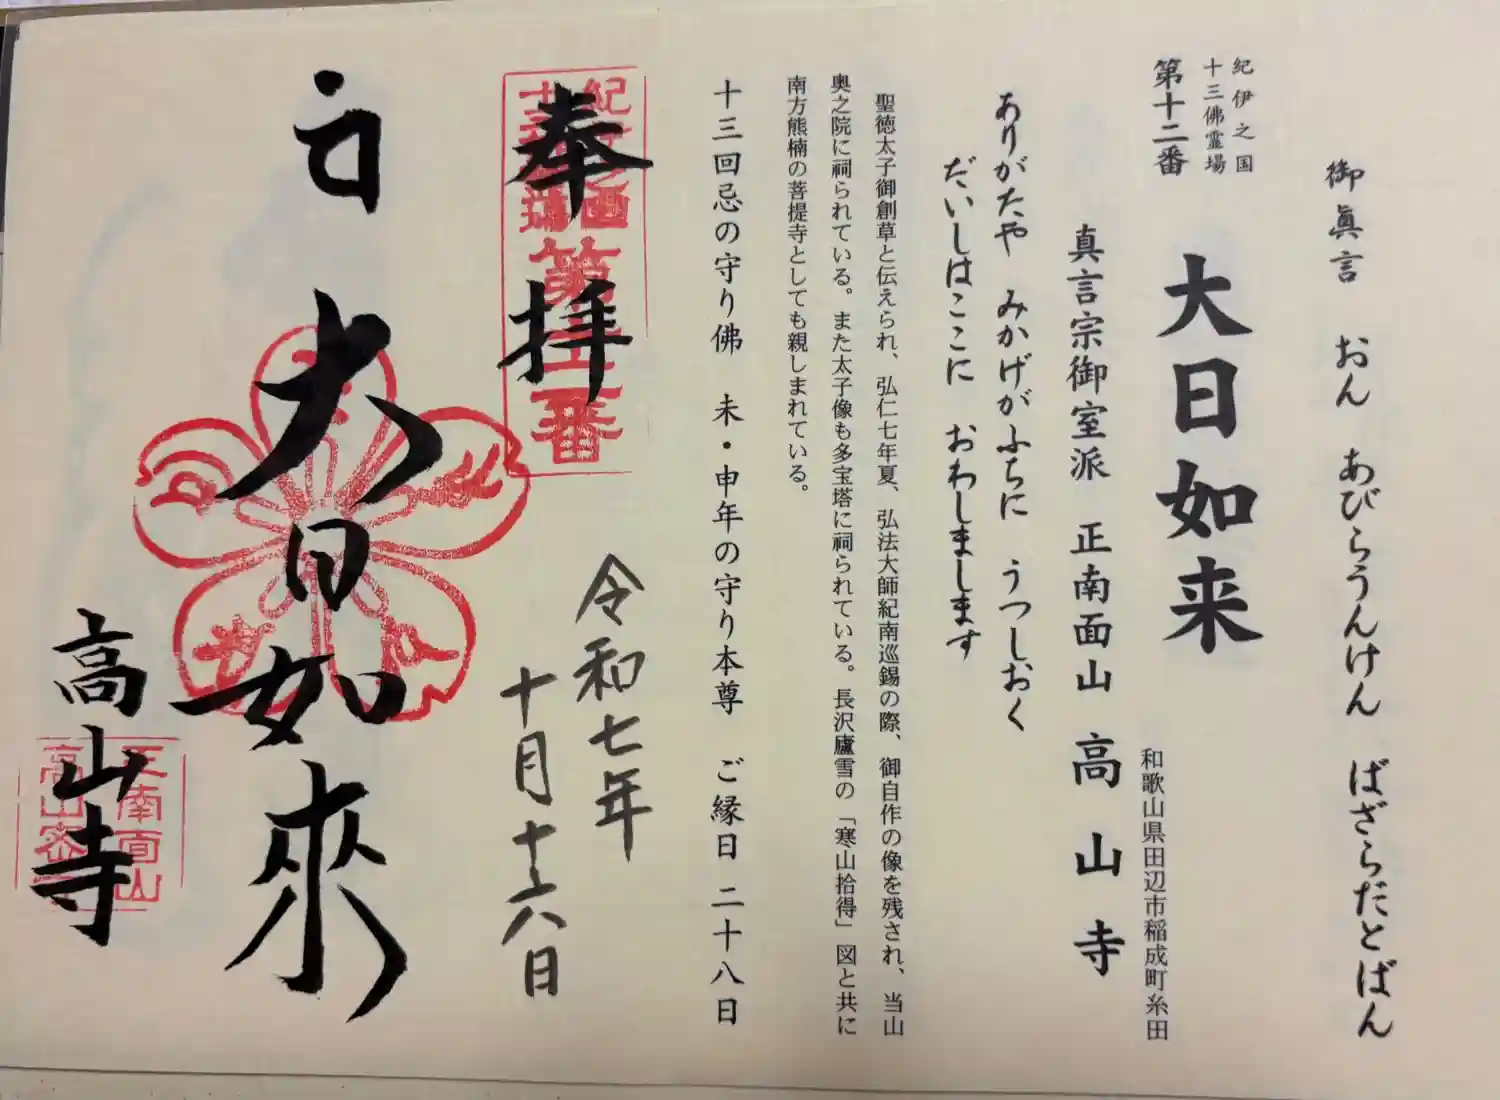 御眞言　おん　あびらうんけん　ばざらだとばん
紀伊之国
十三佛霊場
第十二番
大日如来
和歌山県田辺市稲成町糸田
真言宗御室派　正南面山　高山寺
ありがたや　みかげがふちに　うつしおく
だいしはここに　おわしまします
聖徳太子御創草と伝えられ、弘仁七年夏、弘法大師紀南巡錫の際、御自作の像を残され、当山
奥之院に祠られている。また太子像も多宝塔に祠られている。長沢廬雪の「寒山拾得」図と共に
南方熊楠の菩提寺としても親しまれている。
十三回忌の守り佛　未・申年の守り本尊　ご縁日　二十八日
奉拝
第十二番
令和七年
十月十六日
大日如來
高山寺
正南面山